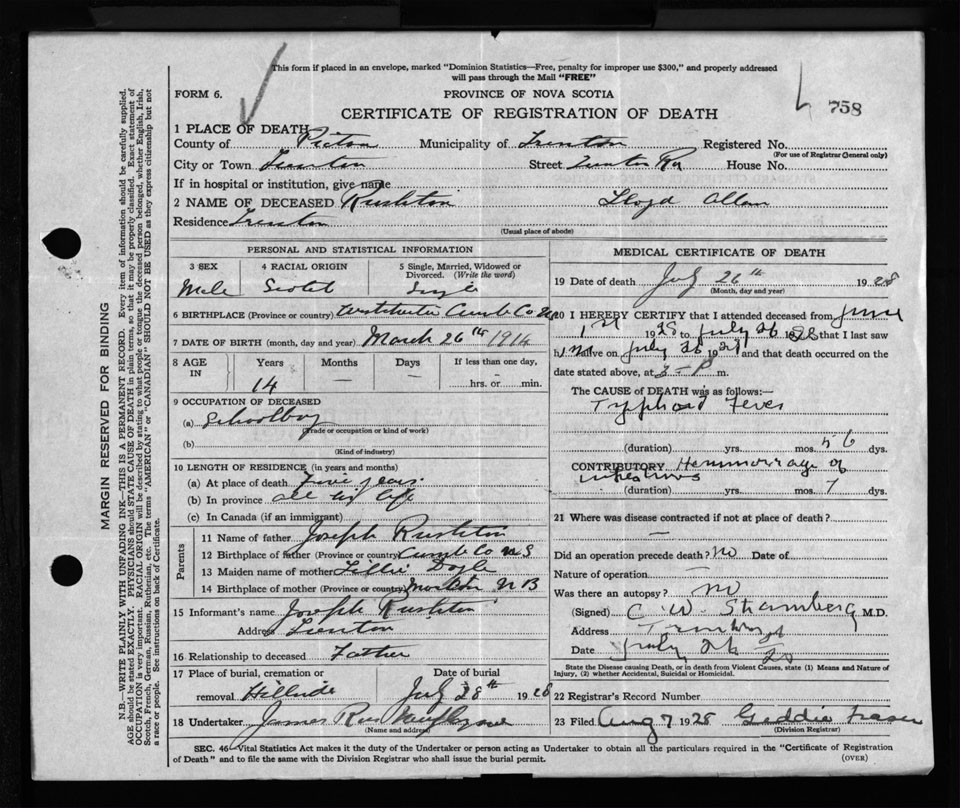 This form if placed in an envelope, marked "Dominion Statistics—Free, penalty for improper use $300," and properly addressed
will pass through the Mail "FREE"
FORM 6.
PROVINCE OF NOVA SCOTIA
758
CERTIFICATE OF REGISTRATION OF DEATH
1 PLACE OF DEATH
County of Pictou Municipality of Trenton Registered No.
(For use of Registrar General only)
City or Town Trenton Street Trenton Rd House No.
If in hospital or institution, give name
2 NAME OF DECEASED Rushton Lloyd Allan
Residence Trenton
(Usual place of abode)
PERSONAL AND STATISTICAL INFORMATION
3 SEX 4 RACIAL ORIGIN 5 Single, Married, Widowed or
Divorced. (Write the word)
Male Scotch Single
6 BIRTHPLACE (Province or country) Cumb Co NS
7 DATE OF BIRTH (month, day and year) March 26th 1914
8 AGE IN Years Months Days If less than one day,
14 — — hrs. or min.
9 OCCUPATION OF DECEASED
(a) Schoolboy
(Trade or occupation or kind of work)
(b)
(Kind of industry)
10 LENGTH OF RESIDENCE (in years and months)
(a) At place of death five years.
(b) In province all his life
(c) In Canada (if an immigrant)
Parents
11 Name of father Joseph Rushton
12 Birthplace of father (Province or country) Cumb Co N S
13 Maiden name of mother Lillie Doyle
14 Birthplace of mother (Province or country) Moncton N B
15 Informant's name Joseph Rushton
Address Trenton
16 Relationship to deceased Father
17 Place of burial, cremation or Date of burial
removal Hillside July 28th 1928
18 Undertaker James Rae New Glasgow
(Name and address)
MEDICAL CERTIFICATE OF DEATH
19 Date of death July 26th 1928
(Month, day and year)
20 I HEREBY CERTIFY that I attended deceased from June
1st 1928 to July 26 1928 that I saw
him alive on July 26 192 and that death occurred on the
date stated above, at 3-P m.
The CAUSE OF DEATH was as follows:—
Typhoid Fever
(duration) yrs. mos. 56 dys.
CONTRIBUTORY Hemmorrage of
intestines
(duration) yrs. mos. 7 dys.
21 Where was disease contracted if not at place of death?
—
Did an operation precede death? no Date of
Nature of operation —
Was there an autopsy? no
(Signed) C W Stramberg M.D.
Address Trenton
Date July 26
State the Disease causing Death, or in death from Violent Causes, state (1) Means and Nature of
Injury, (2) whether Accidental, Suicidal or Homicidal.
22 Registrar's Record Number
23 Filed Aug 7 1928 Geddie Fraser
(Division Registrar)
SEC. 46—Vital Statistics Act makes it the duty of the Undertaker or person acting as Undertaker to obtain all the particulars required in the "Certificate of Registration
of Death" and to file the same with the Division Registrar who shall issue the burial permit.
(OVER)
MARGIN RESERVED FOR BINDING
N.B.—WRITE PLAINLY WITH UNFADING INK—THIS IS A PERMANENT RECORD. Every item of information should be carefully supplied.
AGE should be stated EXACTLY. PHYSICIANS should STATE CAUSE OF DEATH in plain terms, so that it may be properly classified. Exact statement of
OCCUPATION is very important. RACIAL ORIGIN will be described by stating to what people or tongue the deceased person belonged, whether English, Irish,
Scotch, French, German, Russian, Ruthenian, etc. The terms "AMERICAN" or "CANADIAN" SHOULD NOT BE USED as they express citizenship but not
a race or people. See instructions on back of Certificate.